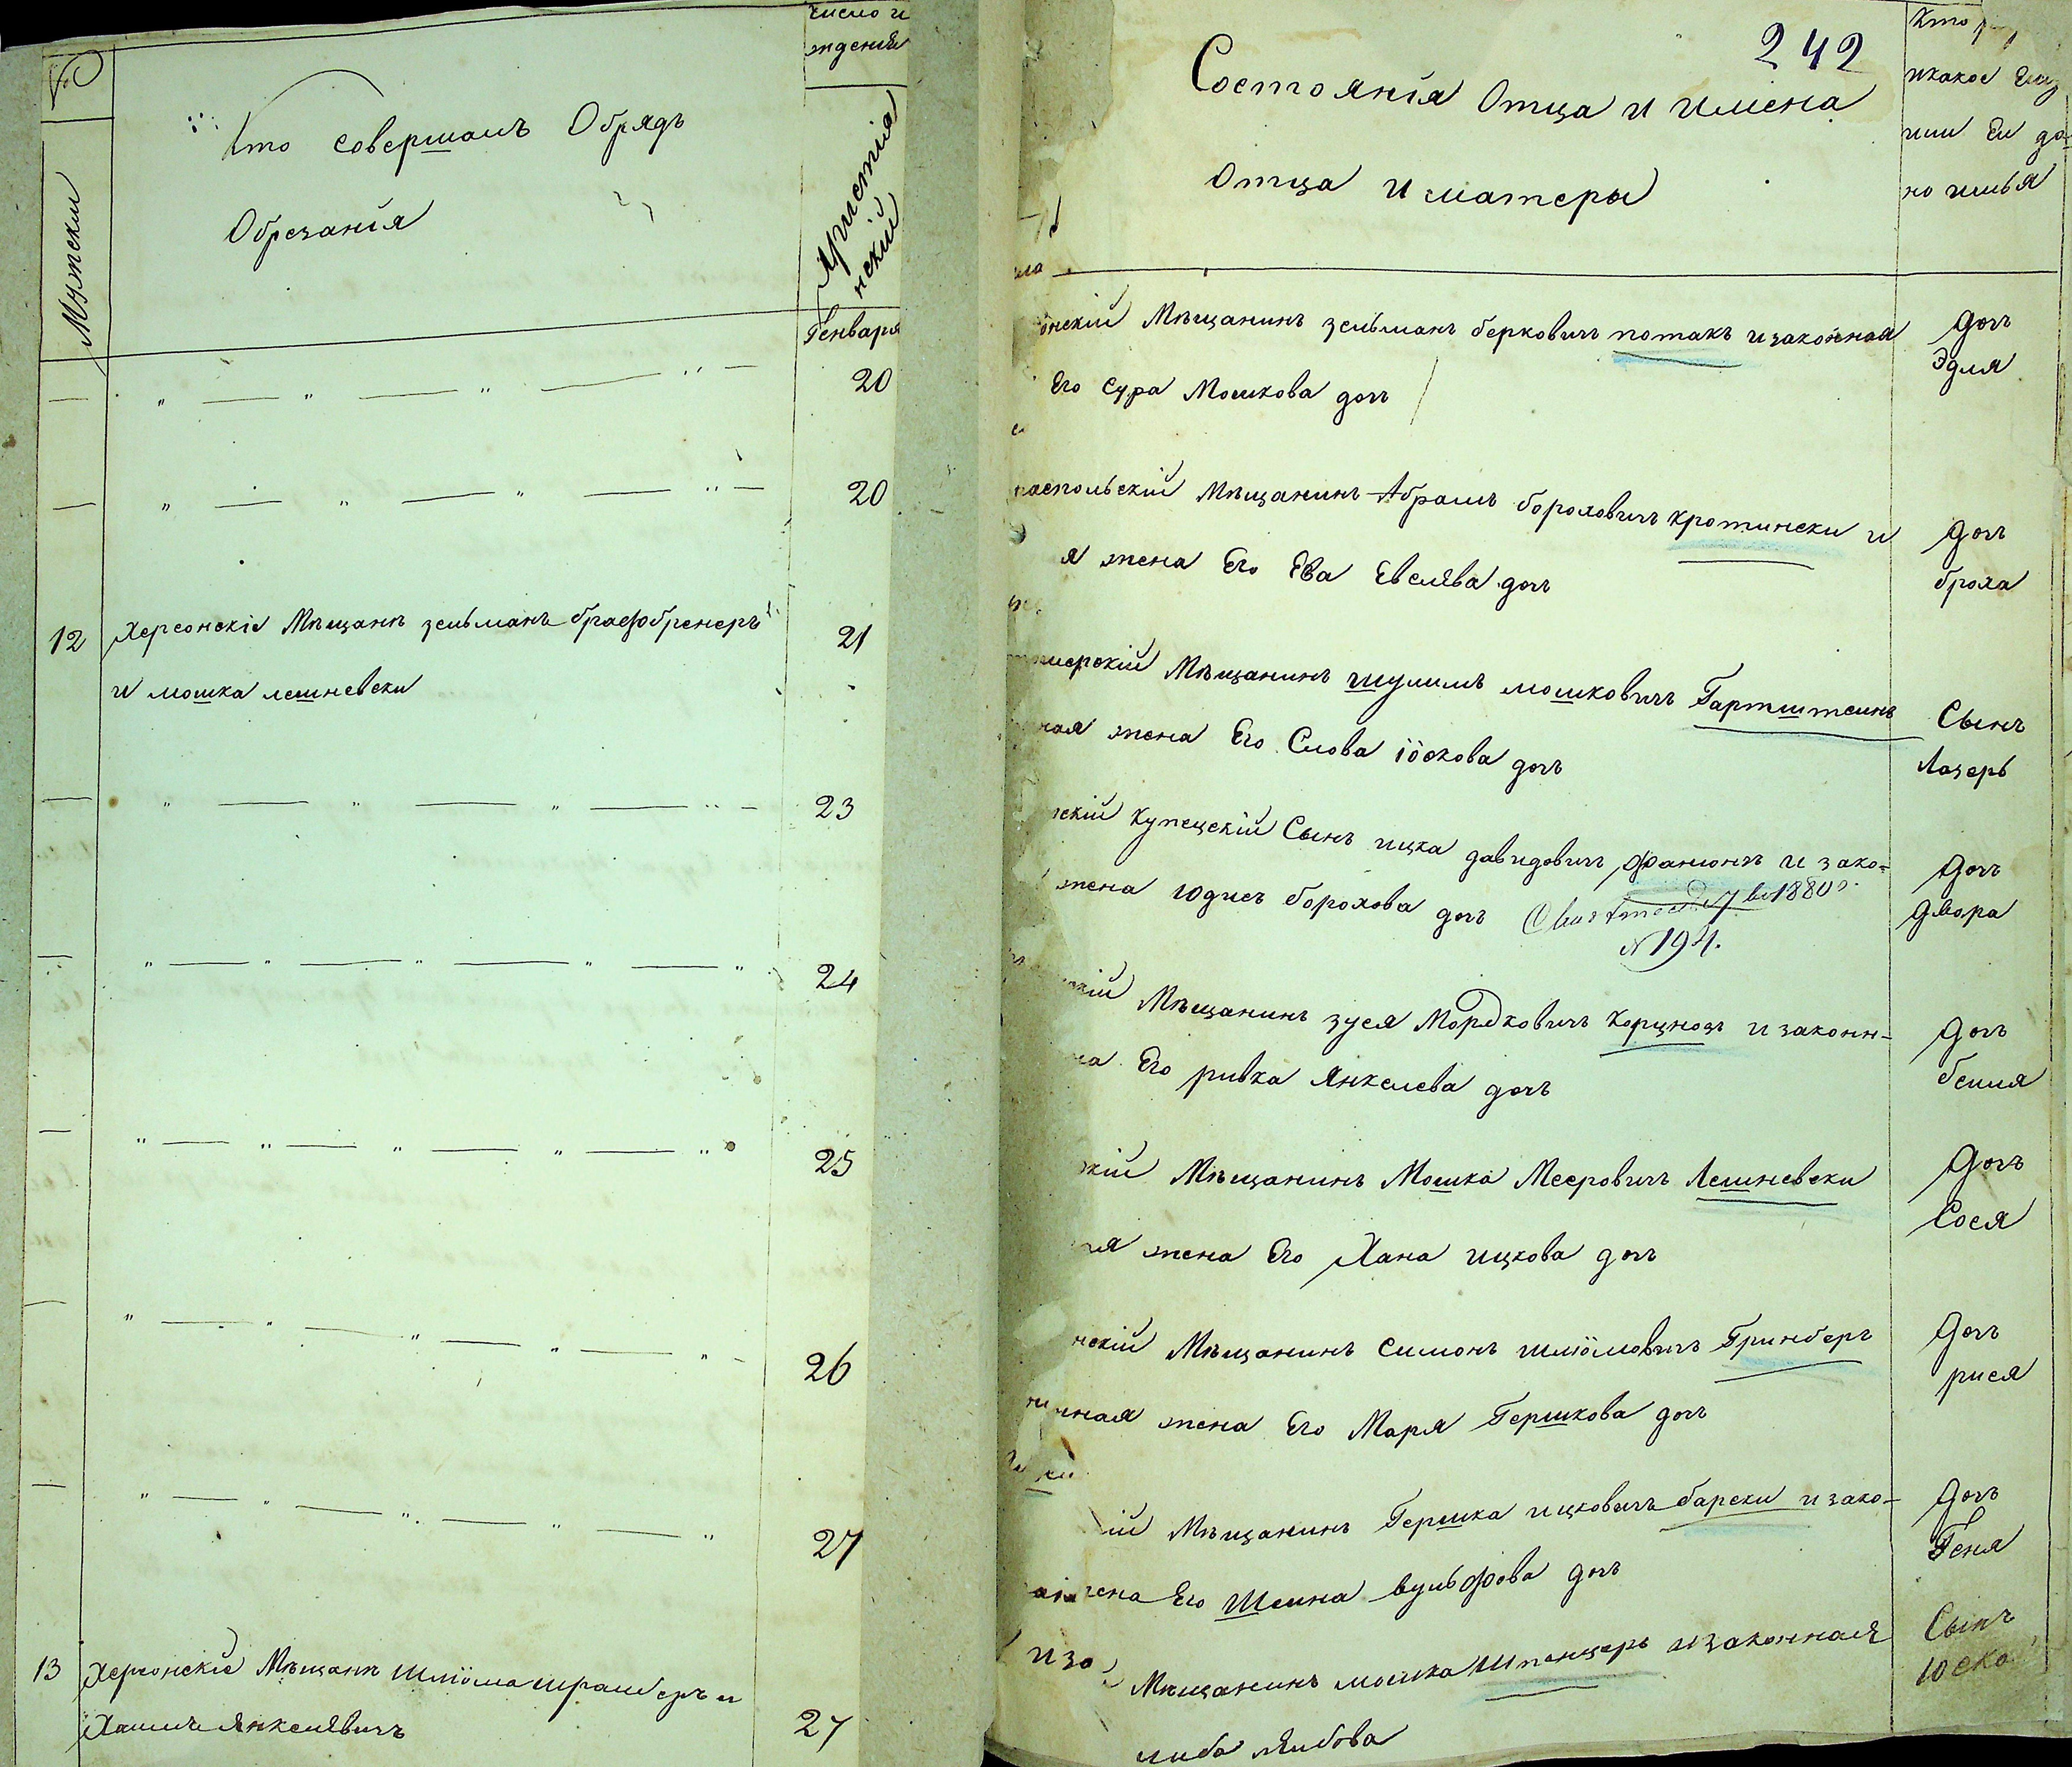 Число и
ждения
Мужески
Кто совершалъ Обрядъ
Обрезанія
Христіа
нский
Генваря
— „ — „ — „ — „ — 20
— „ — „ — „ — „ — 20
12 Херсонскіе Мѣщане зельманъ 21
и мошка лешневски
— „ — „ — „ — „ — 23
— „ — „ — „ — „ 24
— „ — „ — „ — „ — „ 25
— „ — „ — „ — „ — „ 26
— „ — „ — „ — „ — „ 27
13 Херсонскіе Мѣщане Шліома и
Хаимъ Янкелевичъ 27
242
Состоянія Отца и имена
Отца и матеры
Кто
икакое Ему
или Ей да-
но имья
онскій Мѣщанинъ зельманъ берковичъ потакъ изаконная
Его Сура Мошкова дочъ
Дочъ
Эдля
распольскій Мѣщанинъ Абрамъ бороховичъ кротински и
я жена Его Ева Евелева дочъ
Дочъ
броха
мѣщанинъ шулимъ мошковичъ Гартштеинъ
ная жена Его Слова іоскова дочъ
Сынъ
Лазеръ
скій купецскій Сынъ ицка давидовичъ и зако=
жена юдисъ борохова дочъ 1880
№ 194.
Дочъ
Двора
кій Мѣщанинъ зуся Мордковичъ Корцнозъ и законн-
на Его ривка Янкелева дочъ
Дочъ
беиля
кій Мѣщанинъ Мошка Мееровичъ Лешневски
ая жена Его Хана ицкова дочъ
Дочъ
Сося
нскій Мѣщанинъ Симонъ шліомовичъ Гринберъ
ная жена Его Маря Гершкова дочъ
Дочъ
рися
ій Мѣщанинъ Гершка ицковичъ барски и зако-
жена Его Шеина вульфова дочъ
Дочъ
Геня
изо Мѣщанинъ мошка Шпенцеръ изаконная
либа лейбова
Сынъ
юска